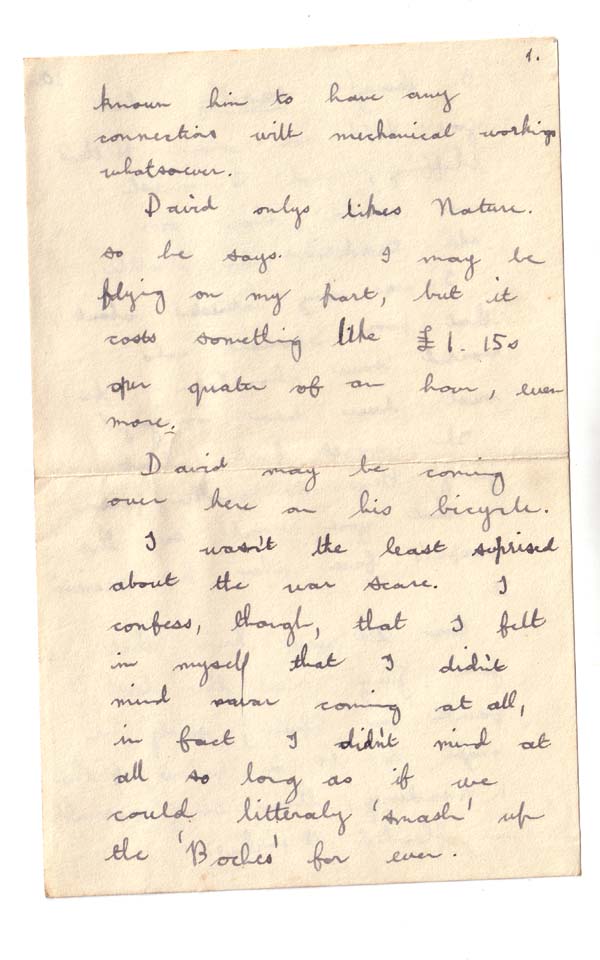 1.
known him to have any
connections with mechanical workings
whatsoever.
David onlys likes Nature.
so he says. I may be
flying on my part, but it
costs something like £1. 15s
per quater of an hour, even
more.
David may be coming
over here on his bicycle.
I wasn't the least suprised
about the war scare. I
confess, though, that I felt
in myself that I didn't
mind war coming at all,
in fact I didn't mind at
all so long as if we
could litteraly 'smash' up
the 'Boches' for ever.